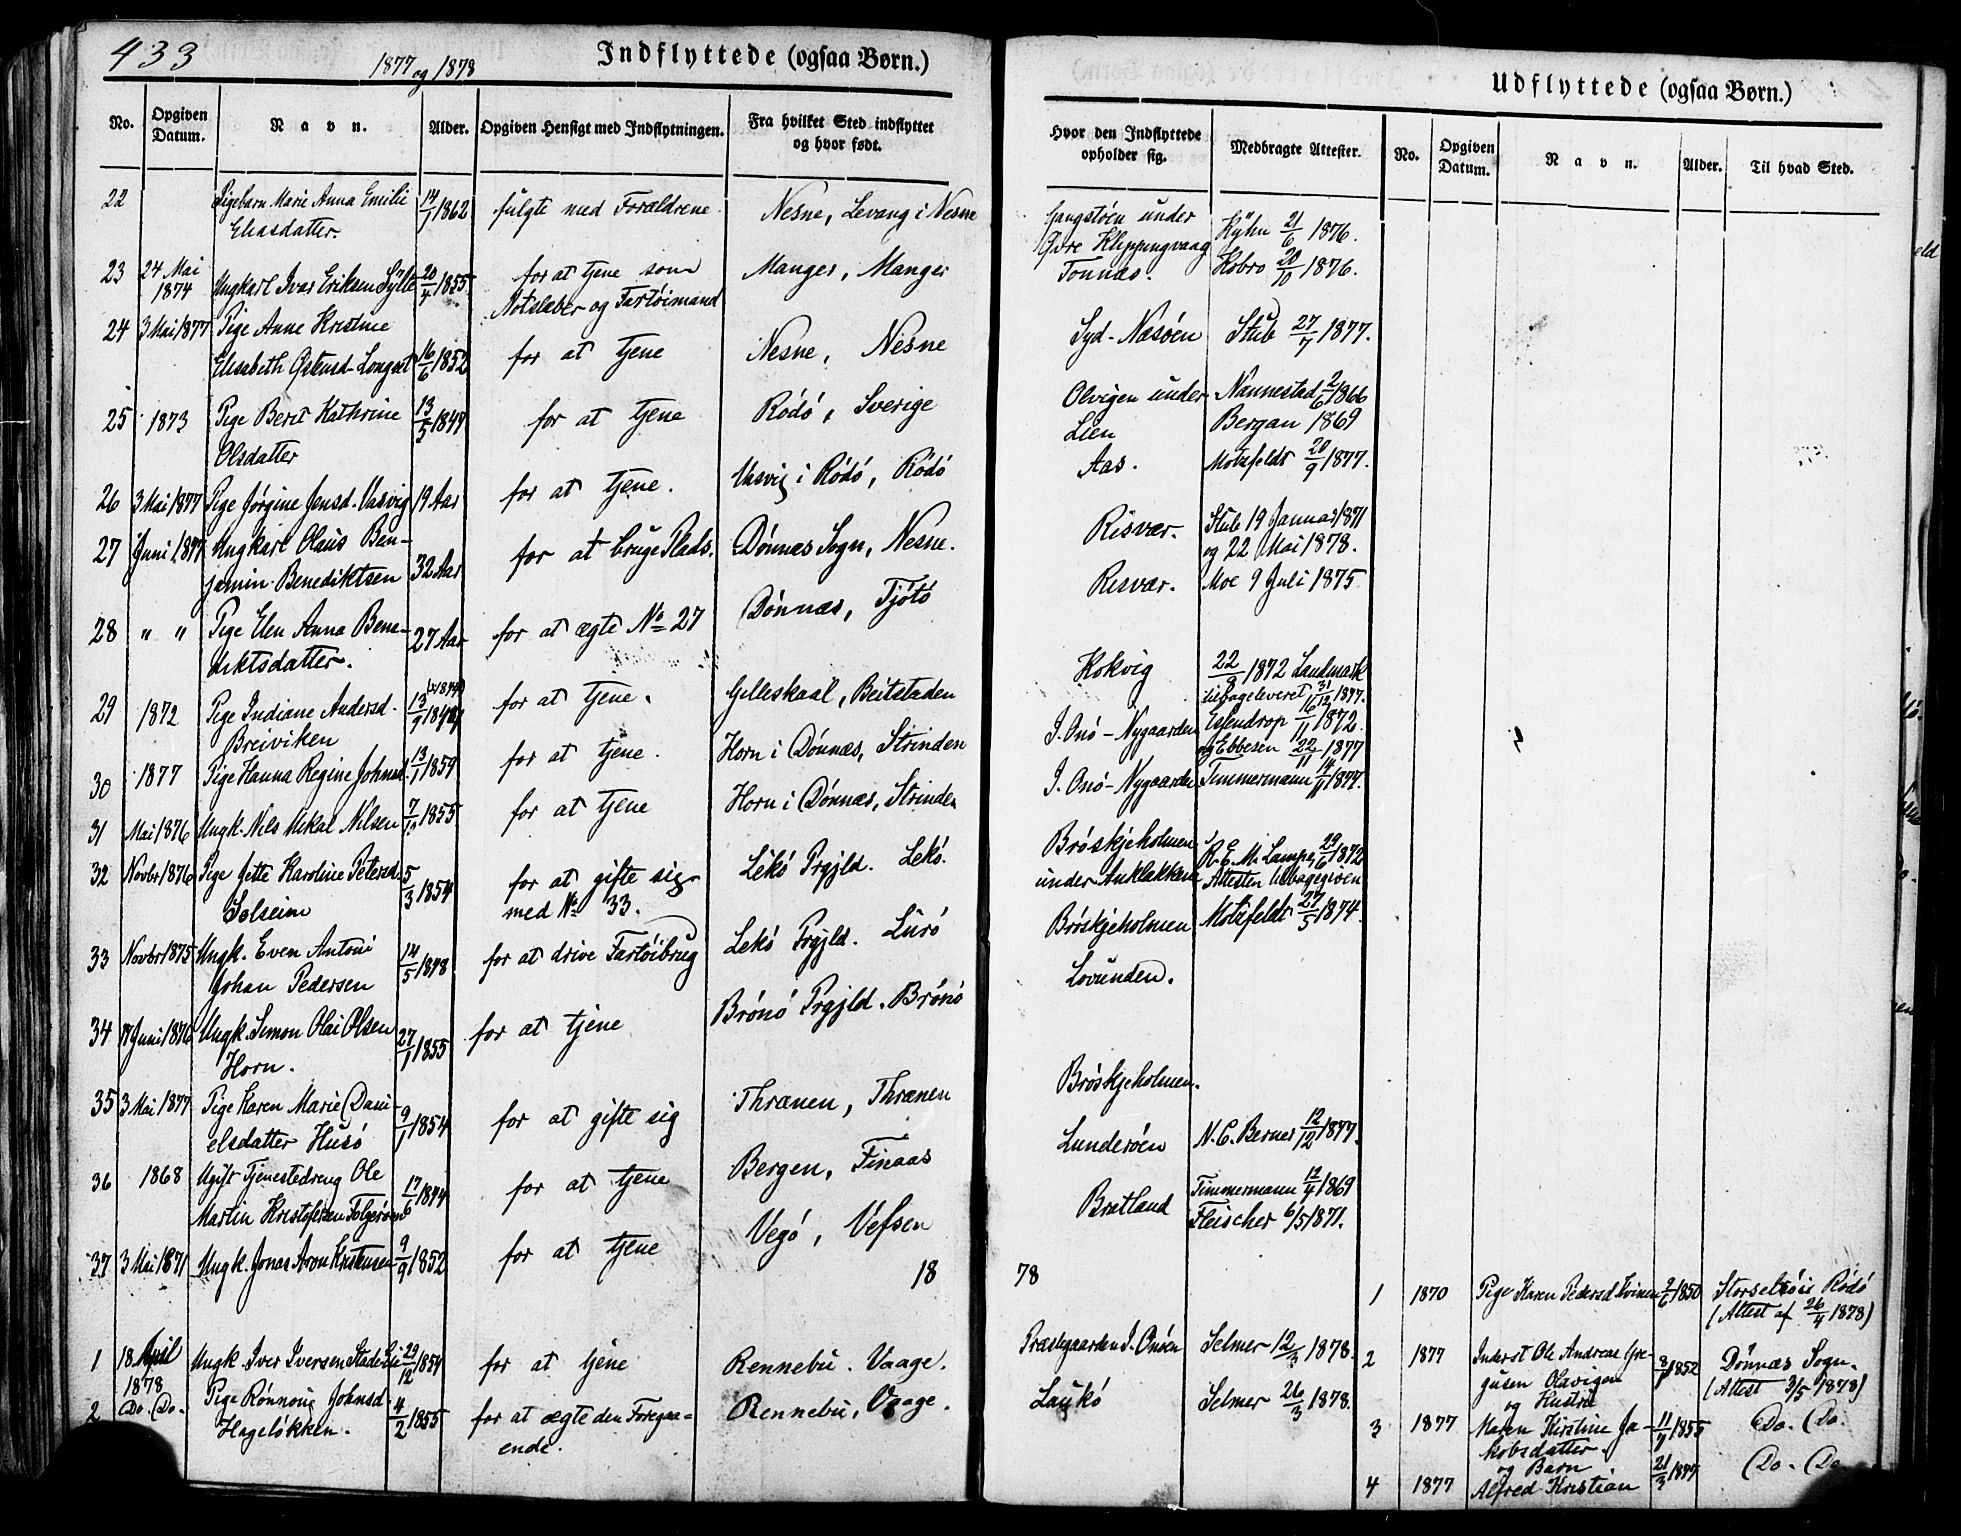 433
1877 og 1878
Indflyttede (ogsaa Børn.)
No. Opgiven Datum. Navn. Alder. Opgiven Hensigt med Indflytningen. Fra hvilket Sted indflyttet og hvor født.
22 Pigebarn Marie Anna Emilie 14/1 1862 fulgte med Forældrene Nesne, Levang i Nesne
Eliasdatter.
23 24 Mai 1874 Ungkarl Ivar Eriksen Sylte 20/4 1855 for at tjene som Manger, Manger
Notskaber og Fartøimand
24 3 Mai 1877 Pige Anne Kristine
Elisabeth Østensd. Longset 16/6 1852 for at tjene Nesne, Nesne
25 1873 Pige Berit Kathrine 13/5 1849 for at tjene Rödö, Sverige
Olsdatter
26 3 Mai 1877 Pige Jörgine Jensd. Vasvig 19 Aar for at tjene. Vasvig i Rödö, Rödö
27 Juni 1877 Ungkarl Olaus Ben-
jamin Benediktsen 32 Aar for at bruge Plads. Dönnæs Sogn, Nesne.
28 " " Pige Elen Anna Bene- 27 Aar for at ægte No 27 Dönnæs, Tjötö
diktsdatter.
29 1872 Pige Indiane Andersd. 13/9 for at tjene. Gilleskaal, Beitstaden
Breiviken
30 1877 Pige Hanna Regine Johnsd. 13/1 1859 for at tjene. Horn i Dönnæs, Strinden
31 Mai 1876 Ungk. Nils Mikal Nilsen 1855 for at tjene Horn i Dönnæs, Strinden
32 Novbr 1876 Pige Jette Karoline Petersd. 5/3 1854 for at gifte sig Lekö Prgjld. Lekö.
Solseim med No 33.
33 Novbr 1875 Ungk. Even Antoni 14/5 1848 for at drive Fartöibrug Lekö Prgjld. Lurö
Johan Pedersen
34 Juni 1876 Ungk. Simon Olai Olsen 27/1 1855 for at tjene Brönö Prgjld. Brönö
Horn.
35 3 Mai 1877 Pige Karen Marie Dani-
elsdatter Husö 9/1 1854 for at gifte sig Thrænen, Thrænen
36 1868 Ugift Tjenestedreng Ole
Martin Kristofersen 17/6 for at tjene Bergen, Finaas
37 3 Mai 1871 Ungk. Jonas Aron Kristensen 9/9 1852 for at tjene Vegö, Vefsen
18
1 18 April 1878 Ungk. Iver Iversen 29/12 1854 for at tjene Rennebu. Vaage.
2 Do. Do. Pige Rönnoug Johnsd. 4/2 1855 for at ægte den Foregaa- Rennebu, Vaage.
Hagelökken. ende.
Udflyttede (ogsaa Børn.)
Hvor den Indflyttede opholder sig. Medbragte Attester. No. Opgiven Datum. Navn. Alder. Til hvad Sted.
Gangstöen under Kyhn 21/6 1876.
Øvre Kleppingvaag
Tonnæs. Kobro 20/10 1876.
Syd-Næsöen Stub 27/7 1877.
Olvigen under Nannestad 2/6 1866
Lien Bergan 1869
Aas. Motzfeldt 20/9 1877.
Risvær. Stub 19 Januar 1871
og 22 Mai 1878.
Risvær. Moe 9 Juli 1875
Kokvig 1872 Landmark
tilbageleveret
I. Onö-Nygaarden Esendrop 16/11 1872.
og Ebbesen 22/11 1877
I. Onö-Nygaarden Timmermann 1877.
Bröskjeholmen R. E. M. Lampe, 29/6 1872
under Anklakken Attesten tilbagegiven
Bröskjeholmen Motzfeldt 27/5 1874.
Lovunden.
Bröskjeholmen.
Lunderöen N. C. Berner 12/12 1877.
Bratland Timmermann 12/4 1869
Fleischer 6/5 1871.
78
1 1870 Pige Karen Pedersd. 1850 Rödö
(Attest af 26/4 1878)
Præstegaarden I. Onöen Selmer 12/3 1878. 2 1877 Inderst Ole Andreas Gre- 1852 Dönnæs Sogn.
gusen Olavigen (Attest 3/5 1878)
og Hustru
Laukö Selmer 26/3 1878. 3 1877 Maren Kirstine Ja- 11/7 1855 Do. Do.
kobsdatter.
og Barn
4 1877 Alfred Kristian 21/3 1877 Do. Do.